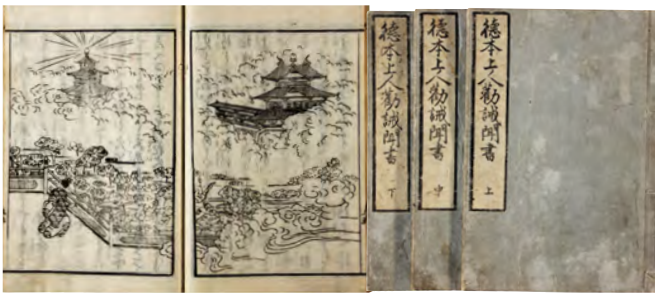 徳本上人勸誡聞書 上
徳本上人勸誡聞書 中
徳本上人勸誡聞書 下